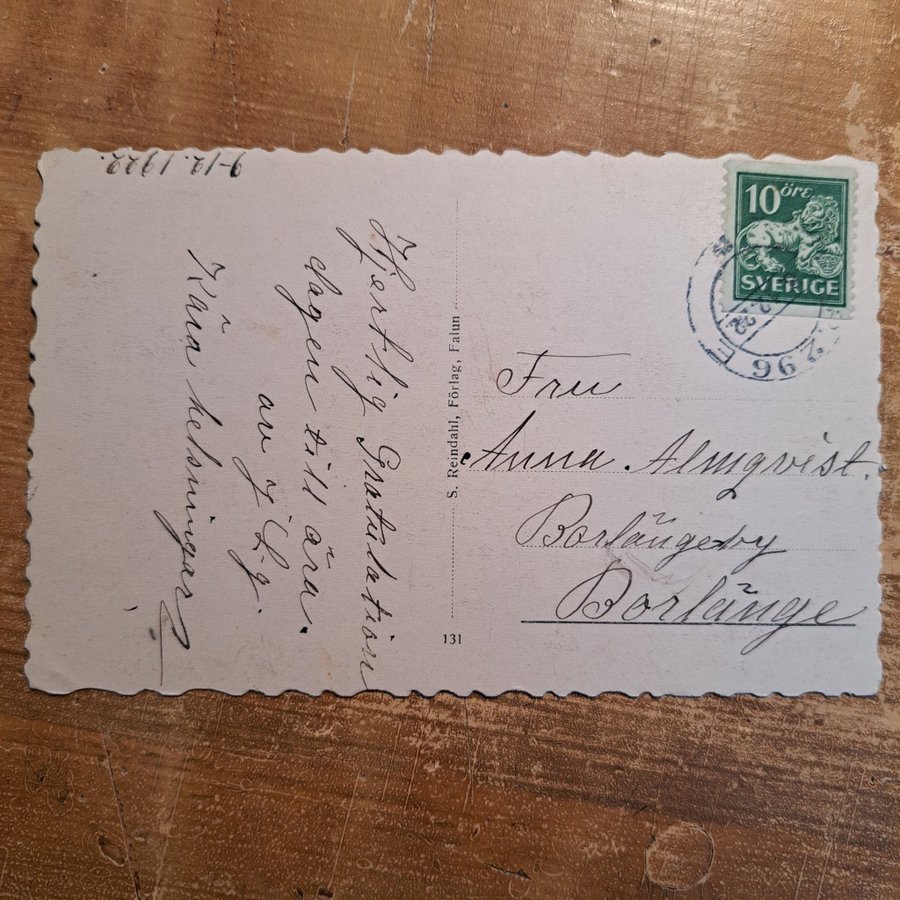 9-12.1922.
Hjertlig Gratulation
dagen till ära.
av
Kära helsningar
S. Reindahl, Förlag, Falun
131
10 öre
SVERIGE
296 E
Fru
Anna Almqvist.
Borlängeby
Borlänge